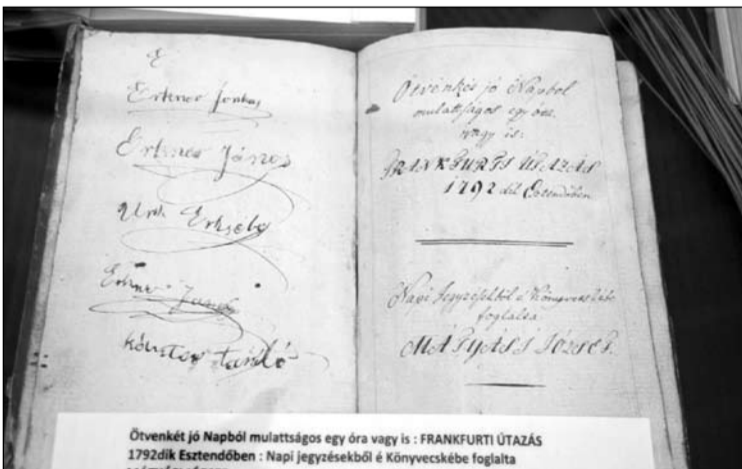 E
Ertner János
Ertner János
Kántor tanító
Ötvenkét jó Napból
mulattságos egy óra
vagy is:
FRANKFURTI ÚTAZÁS
1792dik Esztendőben
Napi Jegyzésekből é Könyvecskébe
foglalta
MÁTYÁSI JÓZSEF.
Ötvenkét jó Napból mulattságos egy óra vagy is : FRANKFURTI ÚTAZÁS
1792dik Esztendőben : Napi jegyzésekből é Könyvecskébe foglalta